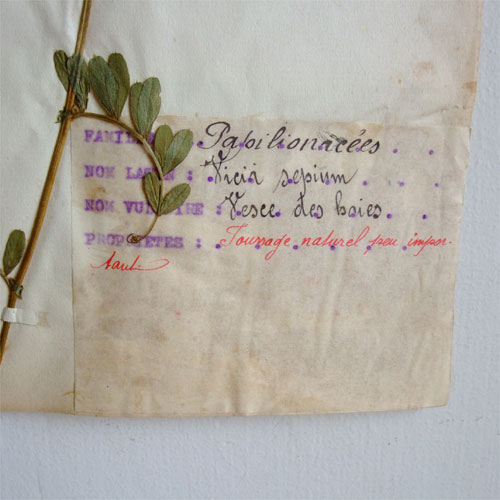 FAMILLE : Papilionacées
NOM LATIN : Vicia sepium
NOM VULGAIRE : Vesce des haies
PROPRIETES : Fourrage naturel peu impor-
tant